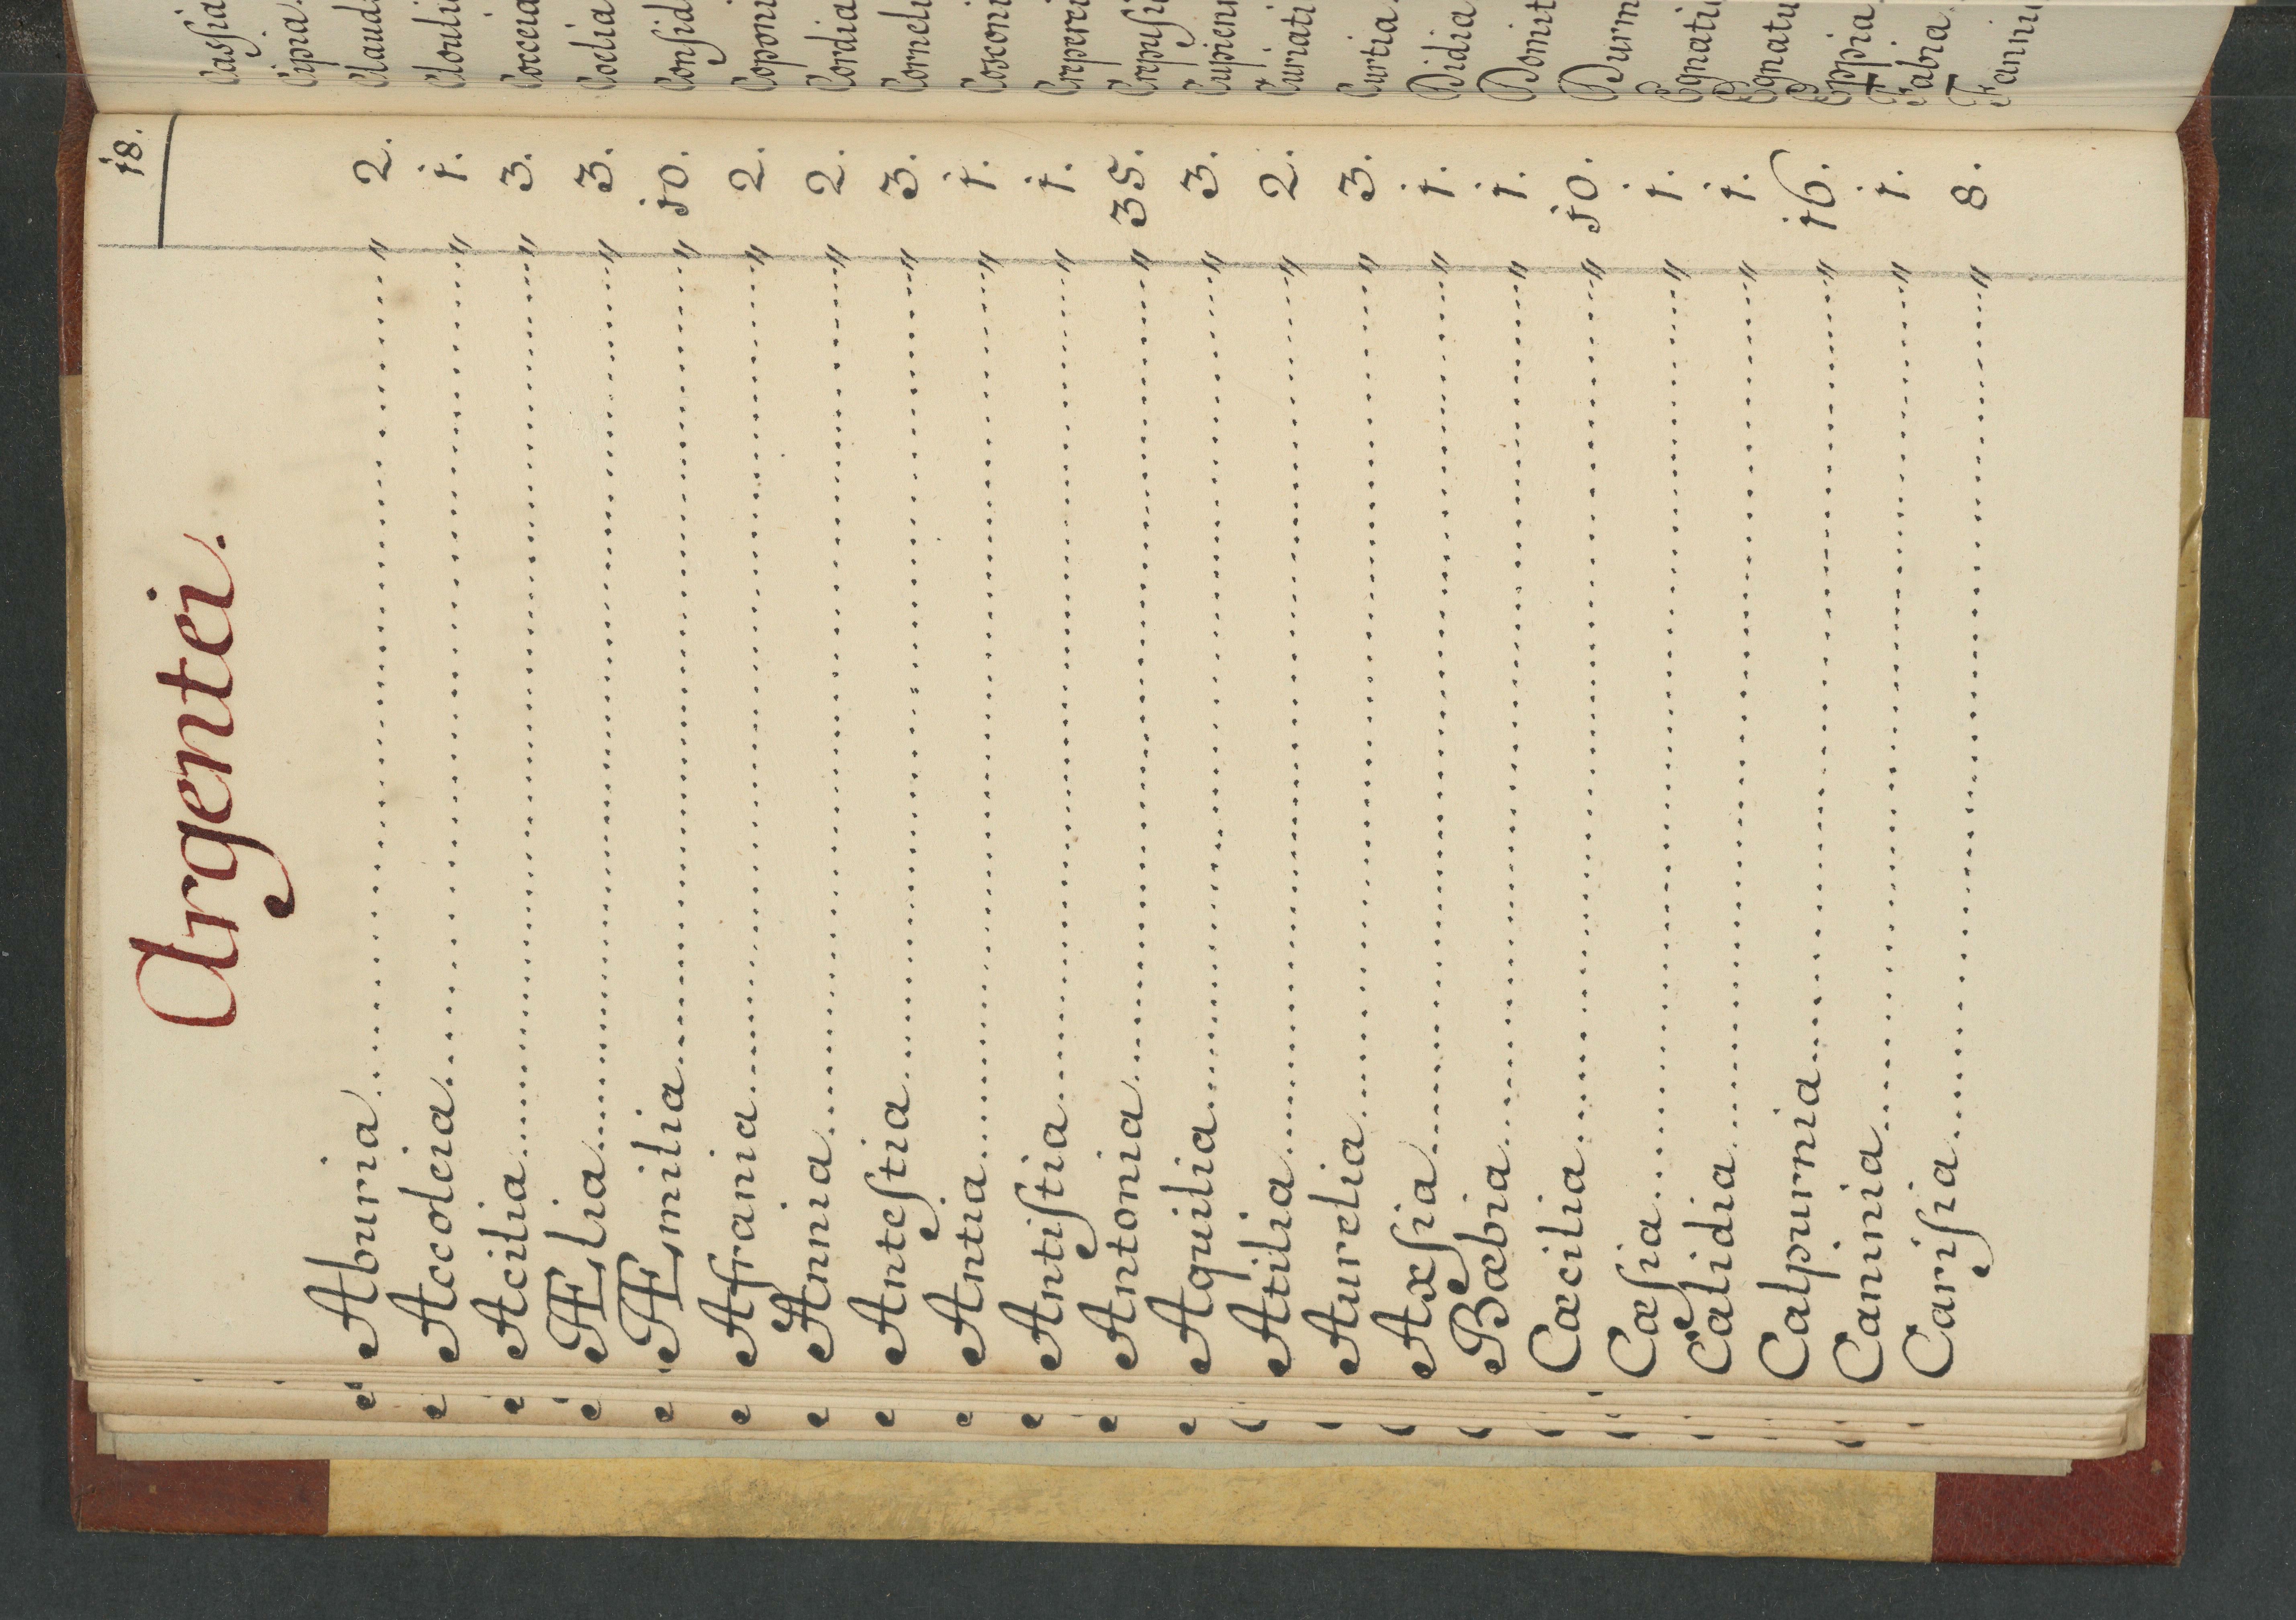 18.
Argentei.
Aburia........................ " 2.
Accoleia........................ " 1.
Acilia........................ " 3.
Ælia........................ " 3.
Æmilia........................ " 10.
Afrania........................ " 2.
Annia........................ " 2.
Anteſtia........................ " 3.
Antia........................ " 1.
Antiſtia........................ " 1.
Antonia........................ " 35.
Aquilia........................ " 3.
Atilia........................ " 2.
Aurelia........................ " 3.
Axſia........................ " 1.
Bæbia........................ " 1.
Cæcilia........................ " 10.
Cæſia........................ " 1.
Calidia........................ " 1.
Calpurnia........................ " 16.
Caninia........................ " 1.
Cariſia........................ " 8.
Caſsia
Cipia.
Claud
Clouli
Cocceia
Coelia
Conſid
Coponi
Cordia
Corneli
Cosconi
Creperei
Crepuſi
Cupienn
Curiati
Curtia.
Didia
Domit
Durm
Egnati
Egnatu
Eppia.
Fabia.
Fanni